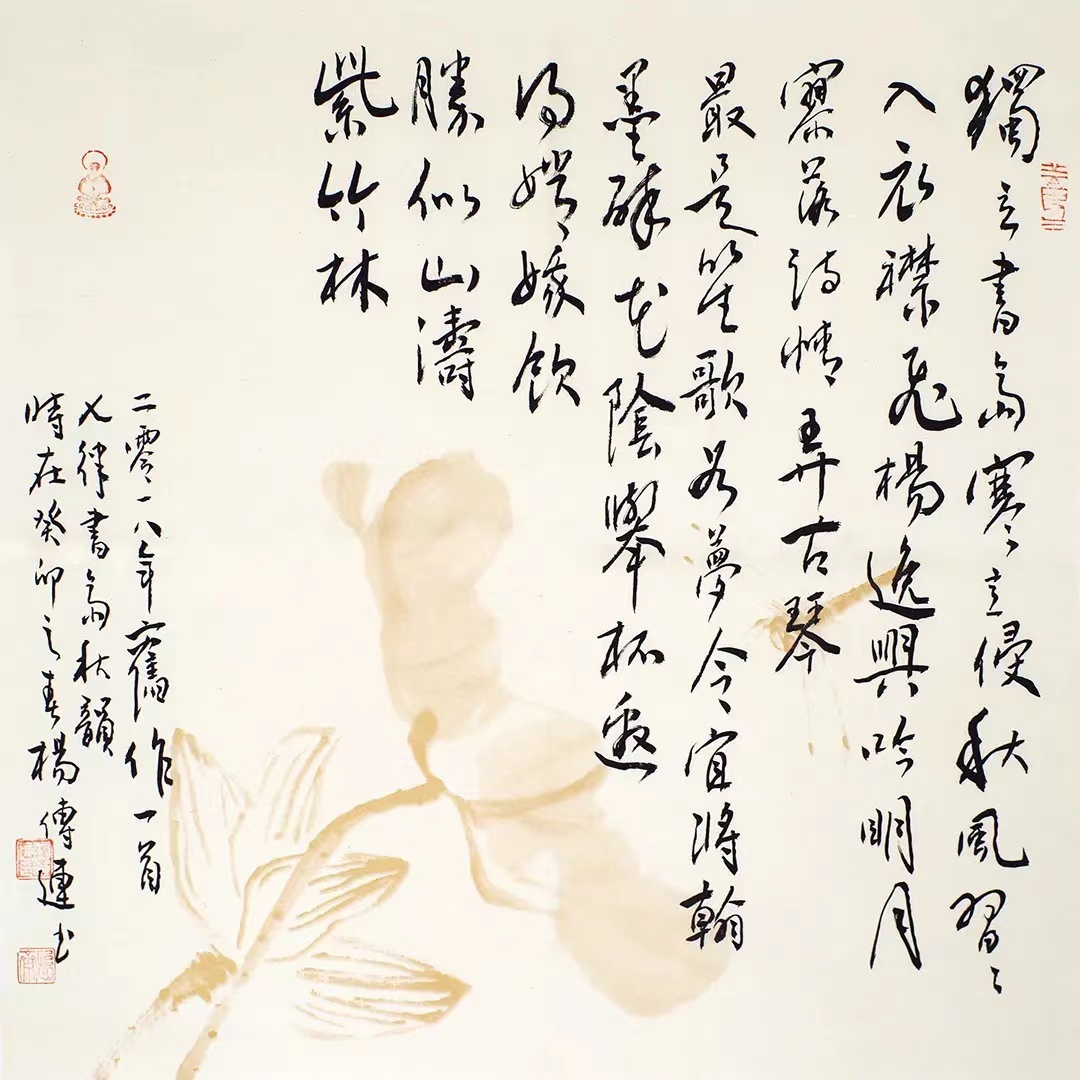 獨立書齋寒意侵秋風習習
入衣襟飛揚逸興吟明月
寥落詩情弄古琴
最是笙歌如夢令宜將翰
墨醉花陰舉杯邀
得嫦娥飲
勝似山濤
紫竹林
二零一八年舊作一首
七律書齋秋韻
時在癸卯之春楊傳運书